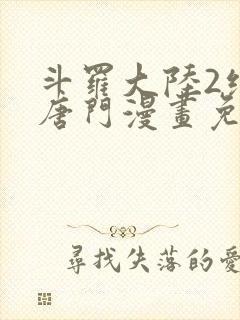 斗羅大陸2
唐門漫畫免
尋找失落的愛